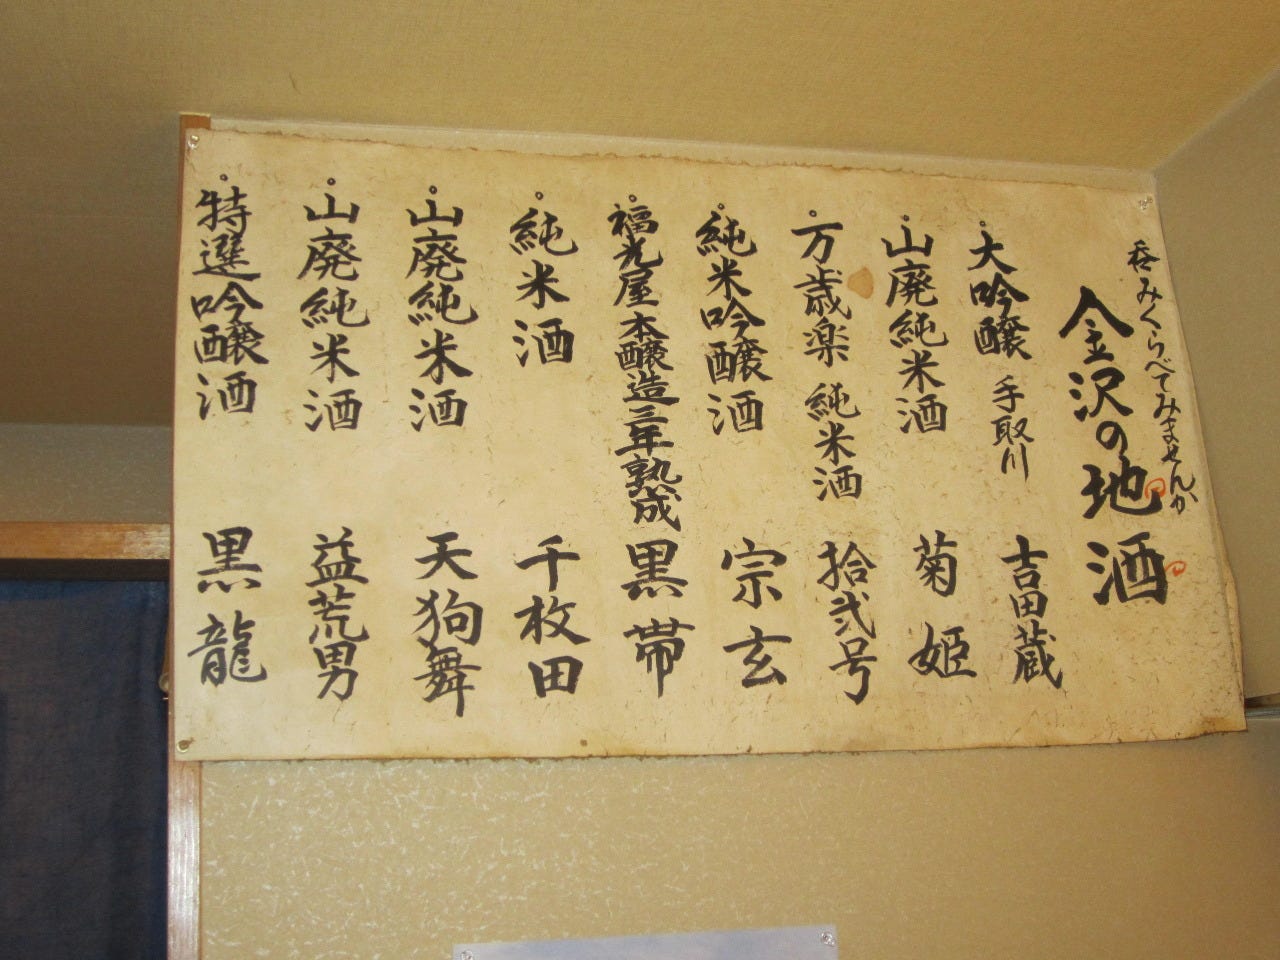 呑みくらべてみませんか
金沢の地酒
大吟醸 手取川 吉田蔵
山廃純米酒 菊姫
万歳楽 純米酒 拾弐号
純米吟醸酒 宗玄
福光屋本醸造三年熟成 黒帯
純米酒 千枚田
山廃純米酒 天狗舞
山廃純米酒 益荒男
特選吟醸酒 黒龍